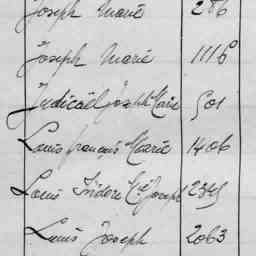 Joseph Marie 286
Joseph Marie 1116
Judicaël Joseph Marie 501
Louis françois Marie 1406
Louis Isidore Joseph
Louis Joseph 2063